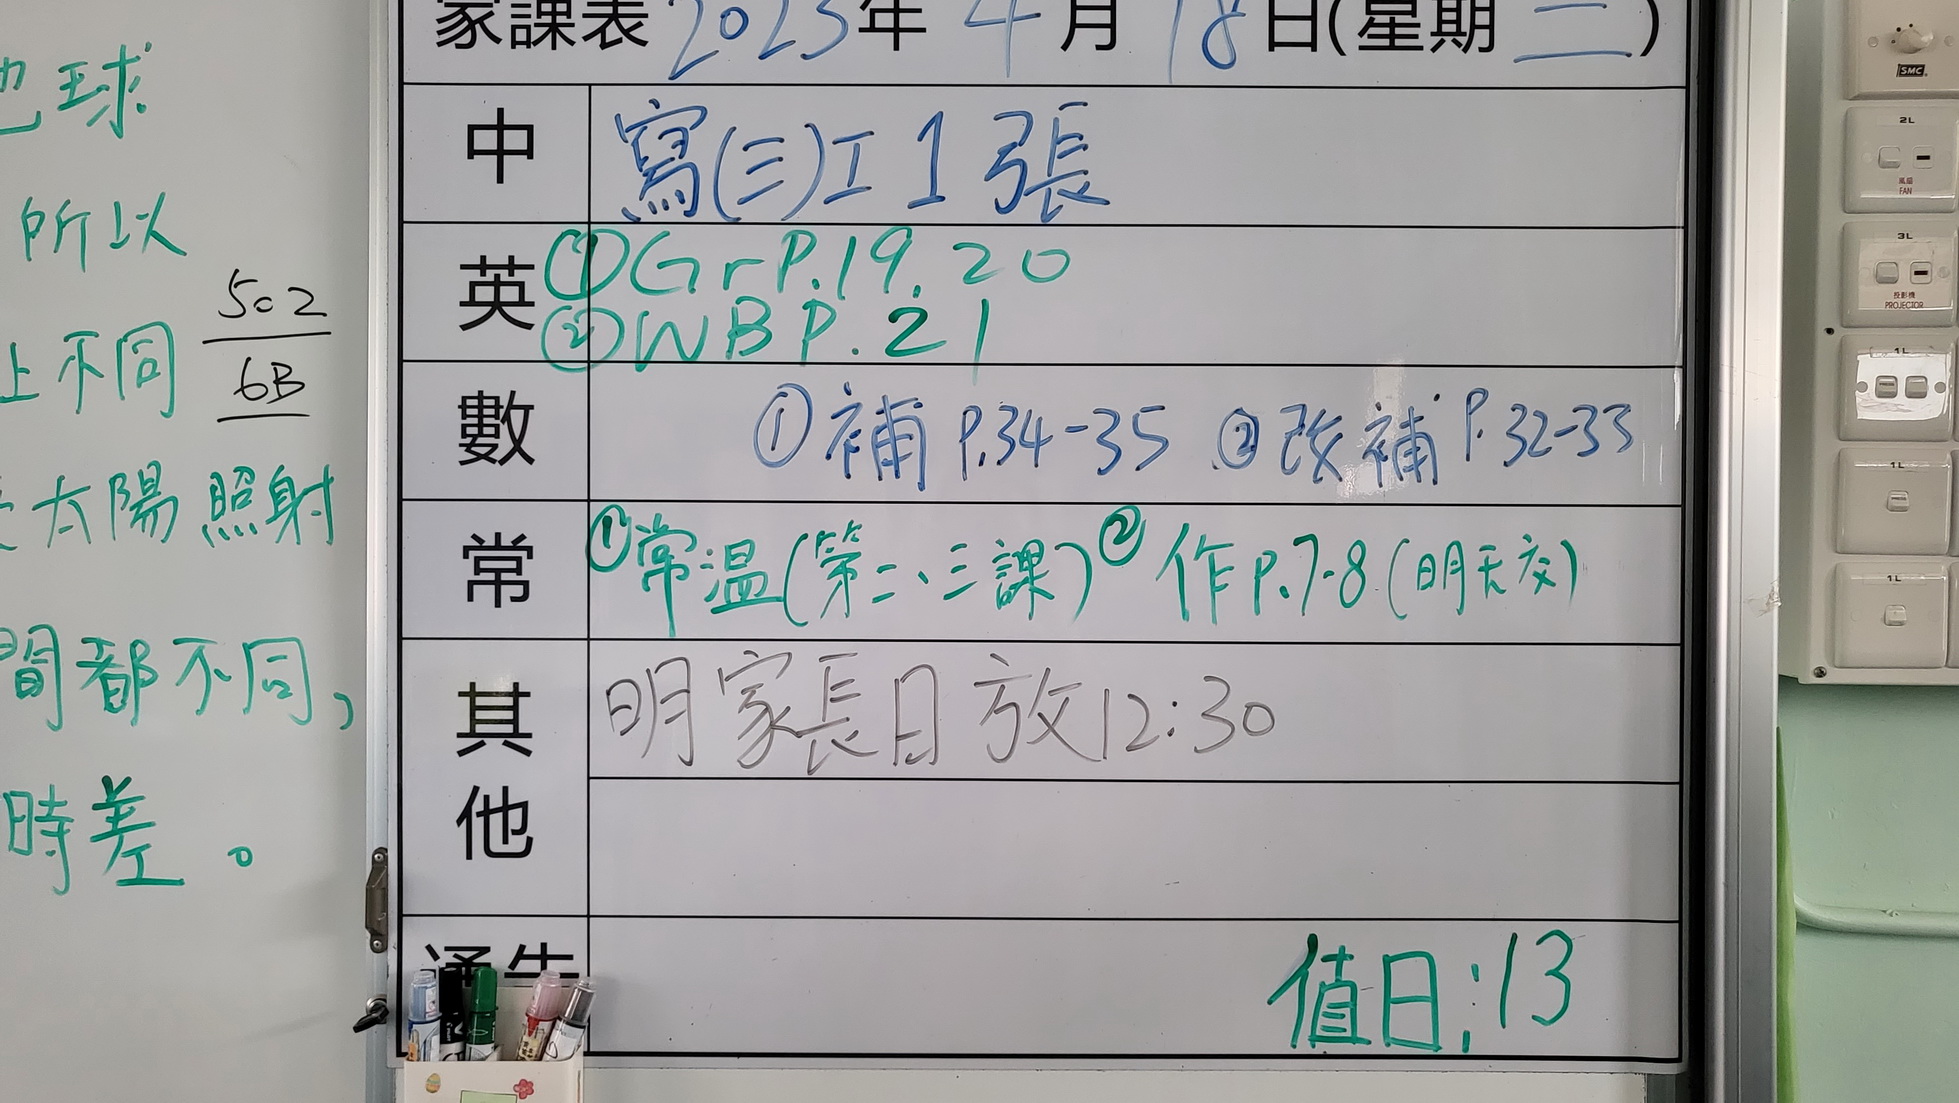 家課表 2023年 4月 18日(星期二)
中 寫(三)工1張
英 ①Gr P.19.20
②WB P.21
數 ①補 P.34-35 ②改補 P.32-33
常 ①常温(第二、三課) ②作 P.7-8 (明天交)
其他 明家長日放12:30
通告
值日:13
地球
所以
上不同
502
6B
太陽照射
間都不同,
時差。
SMC
2L
風扇
FAN
3L
投影機
PROJECTOR
1L
1L
1L